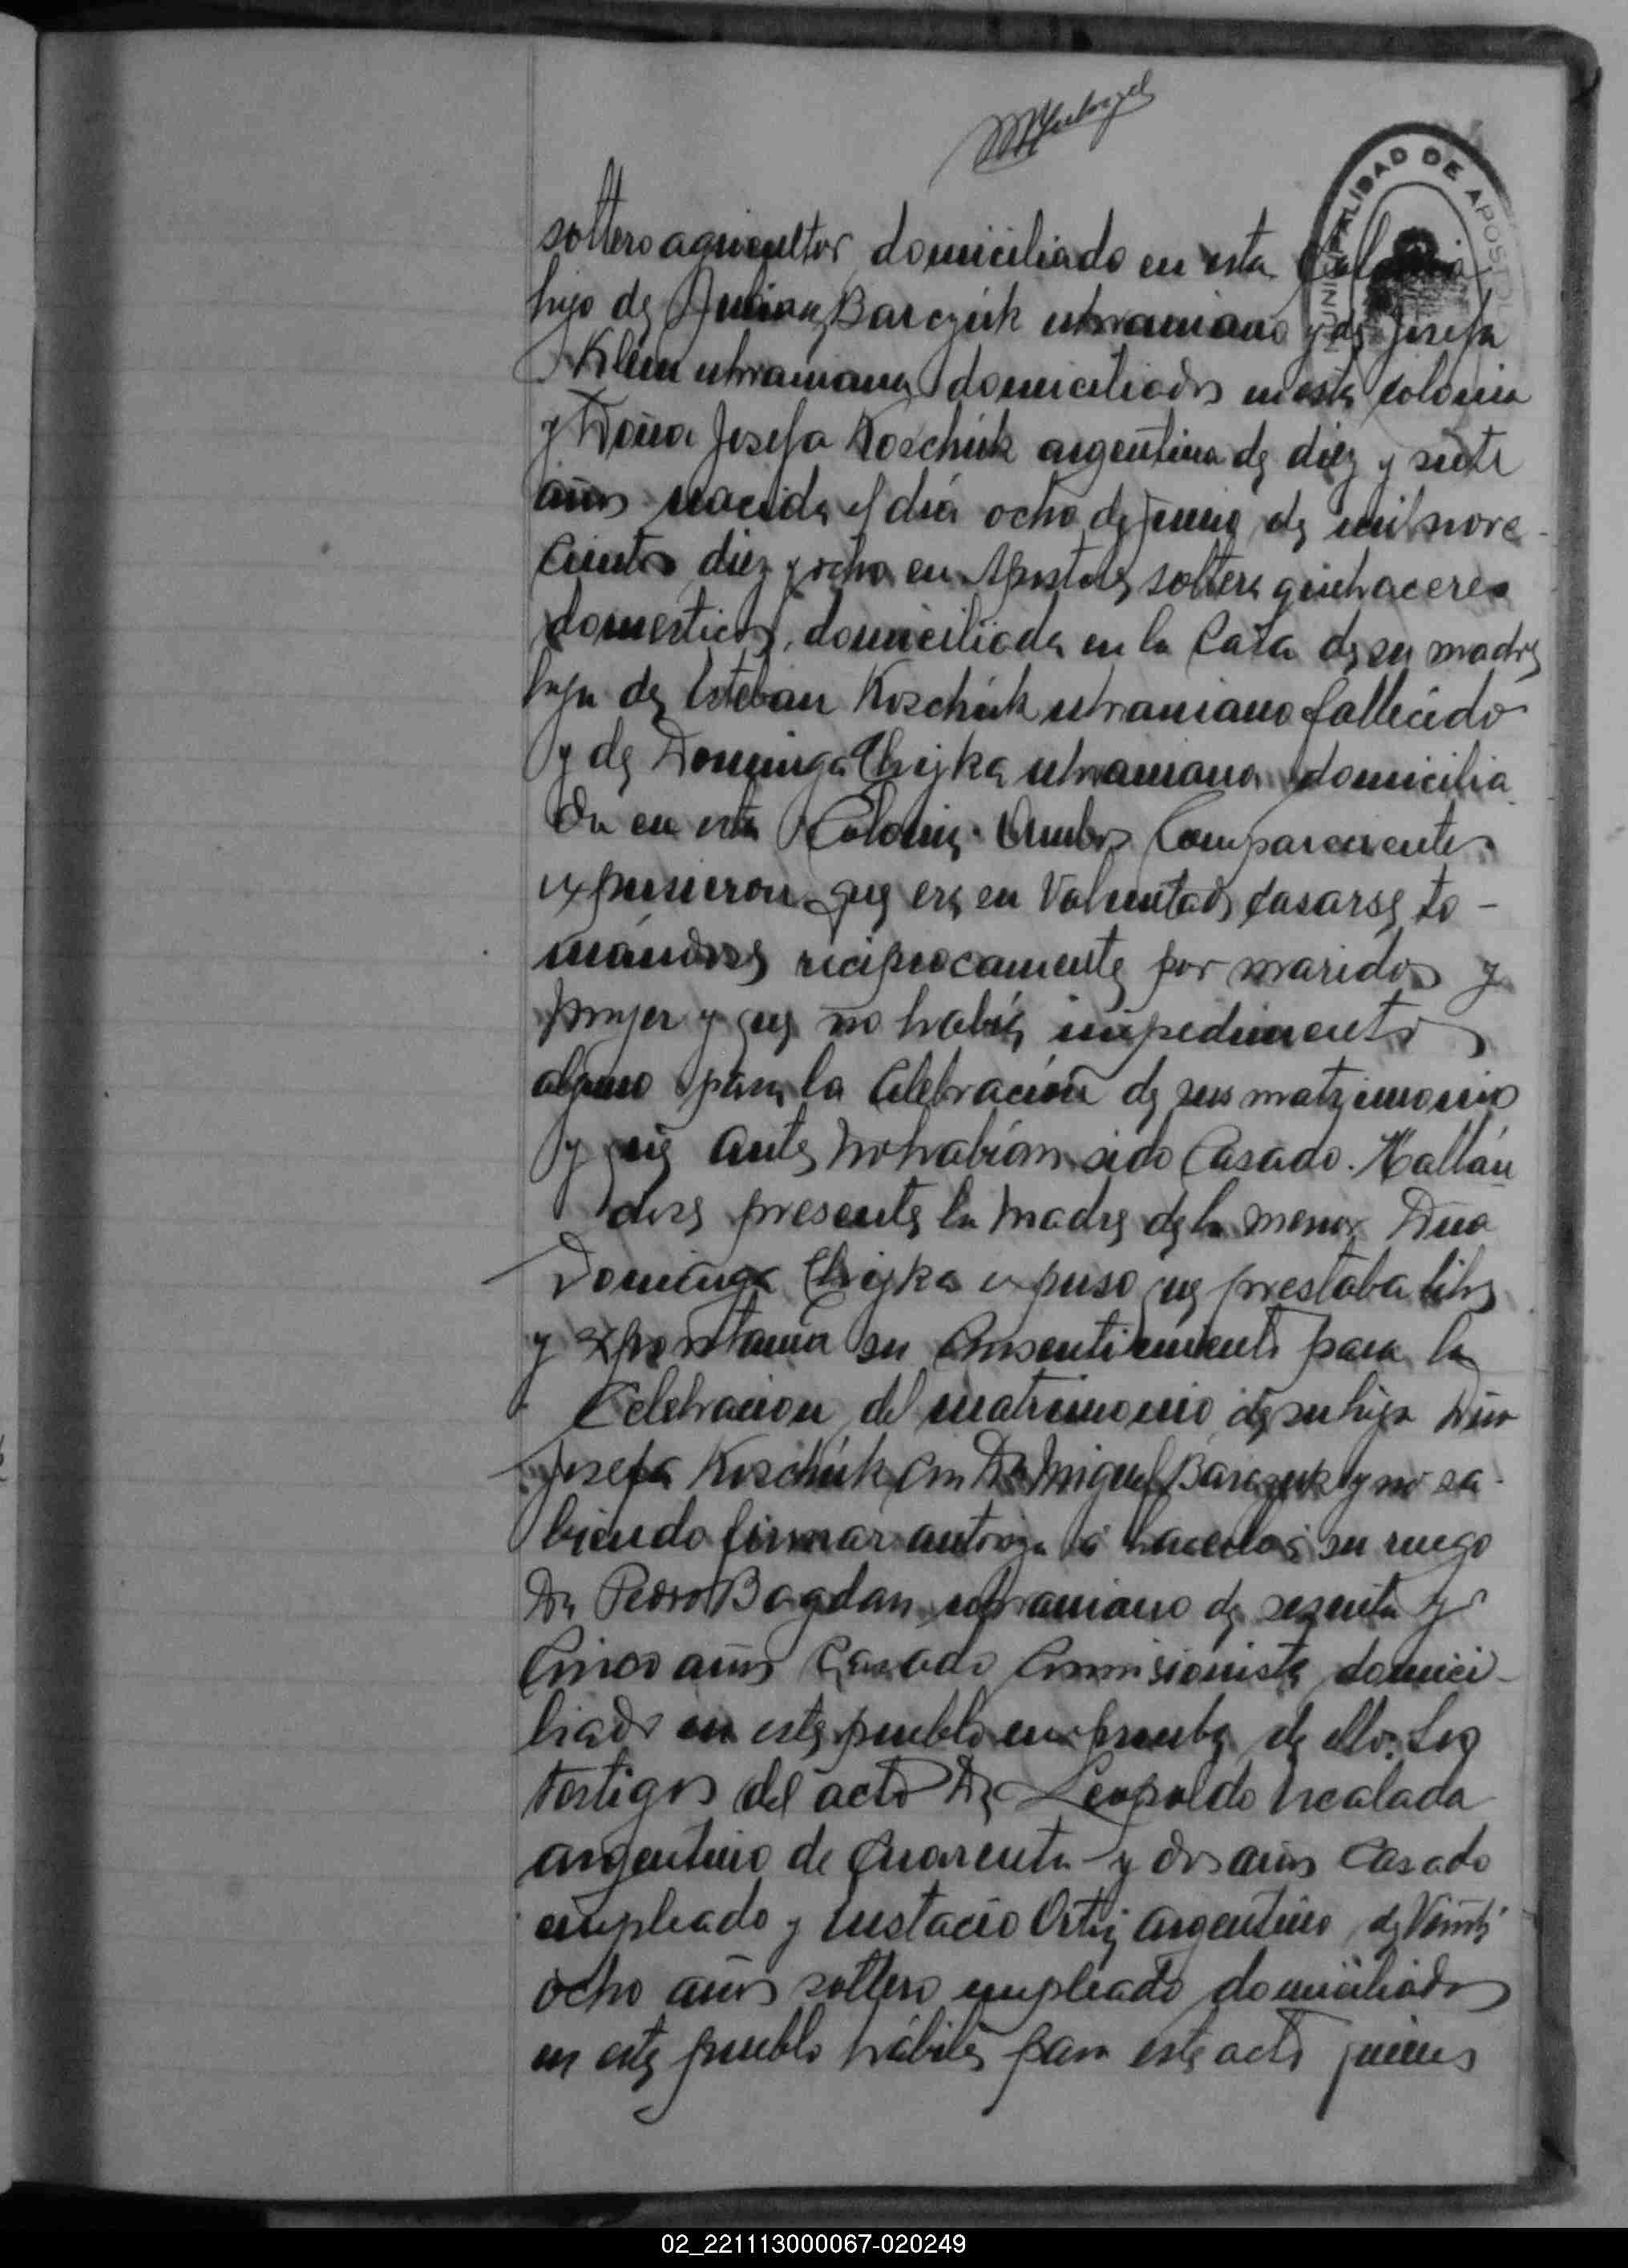 MUNICIPALIDAD DE APOSTOL
soltero agricultor domiciliado en esta Colonia
hijo de Julian Barczuk ukraniano y de Josefa
Klem ukraniana domiciliados en esta colonia
y Doña Josefa Koschuk argentina de diez y siete
años nacida el dia ocho de Junio de mil nove-
cientos diez y ocho en Apostoles soltera quehaceres
domesticos, domiciliada en la Casa de su madre
hija de Esteban Koschuk ukraniano fallecido
y de Dominga ukraniana domicilia
da en esta Colonia. Ambos Comparecientes
expusieron que era su Voluntad casarse to-
mándose reciprocamente por marido y
mujer y que no había impedimento
alguno para la Celebración de sus matrimonio
y que antes no habían sido Casado. Hallán
dose presente la Madre de la menor Dña
Dominga expuso que prestaba libre
y expontanea su Consentimiento para la
Celebracion del matrimonio de su hija Dña
Josefa Koschuk con Dn Miguel Barczuk y no sa-
biendo firmar autoriza á hacerlo á su ruego
Dn Pedro Bogdan ukraniano de sesenta y
Cinco años Casado Commisionista domici-
liado en este pueblo en prueba de ello. Los
testigos del acto Dn Leopoldo
argentino de Cuarenta y dos años Casado
empleado y Eustacio Ortiz argentino de Veinti
ocho años soltero empleado domiciliados
en este pueblo hábiles para este acto quienes
02_221113000067-020249